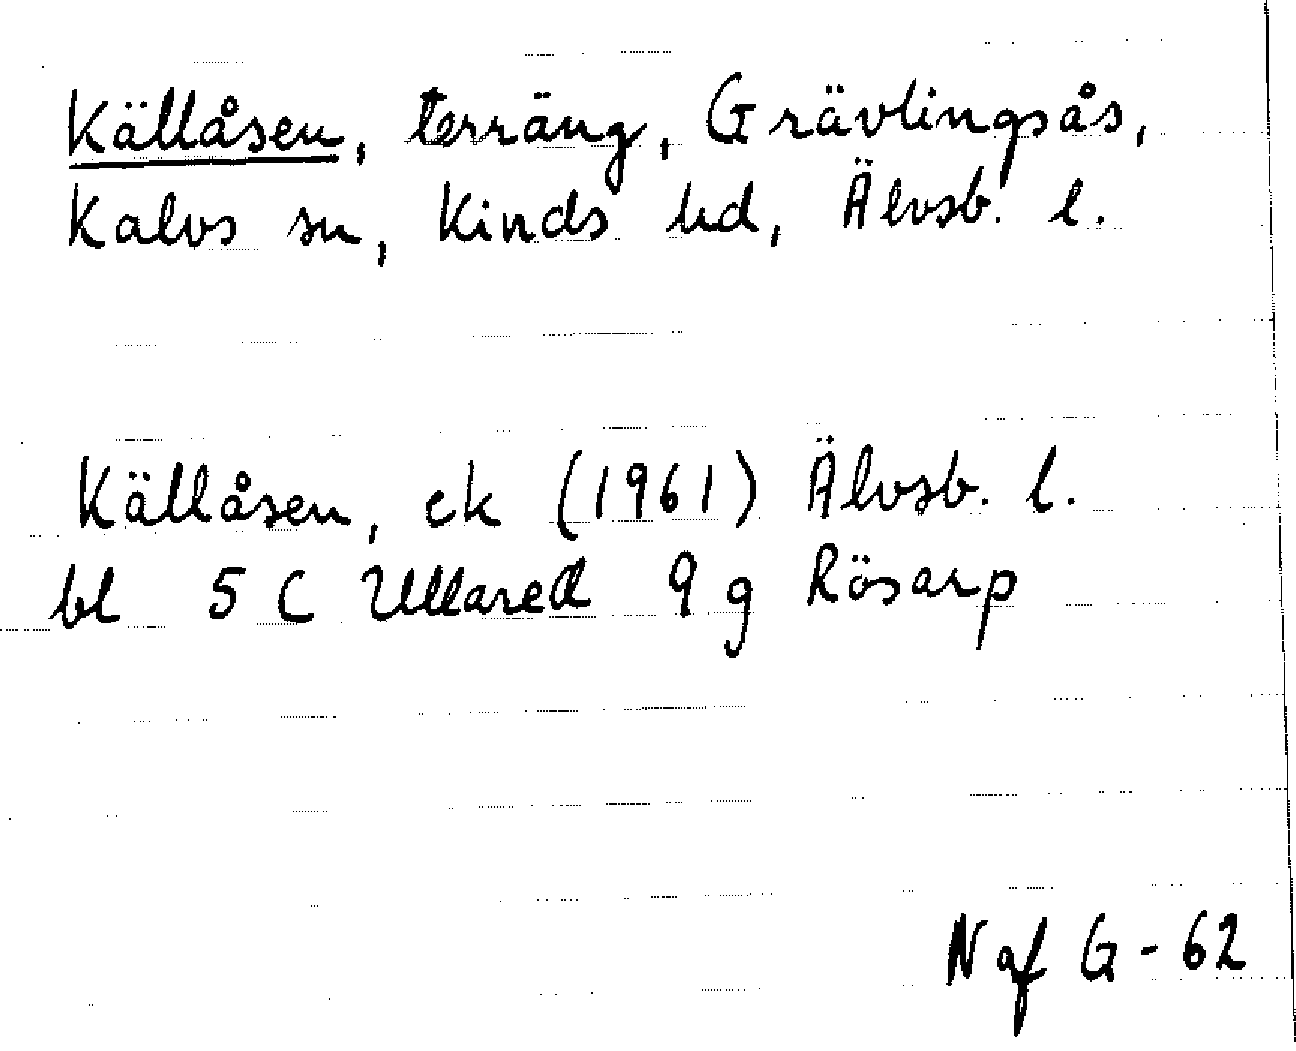 Källåsen, terräng, Grävlingsås,
Kalvs sn, Kinds hd, Älvsb. l.
Källåsen, ek (1961) Älvsb. l.
bl 5 C Ullared 9 g Rösarp
N af G - 62